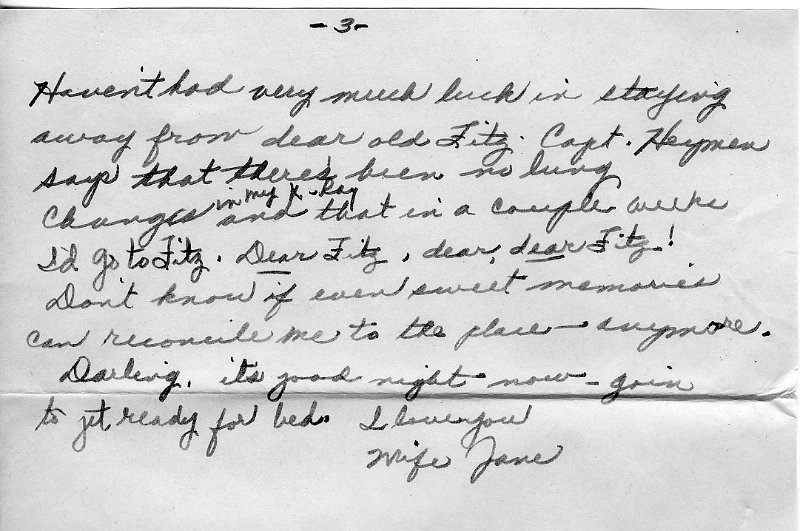 -3-
Haven't had very much luck in staying
away from dear old Fitz. Capt. Heymen
says that there's been no lung
changes in my X-Ray and that in a couple weeks
I'd go to Fitz. Dear Fitz, dear, dear Fitz!
Don't know if even sweet memories
can reconcile me to the place - anymore.
Darling, it's good night now - goin
to get ready for bed. I love you
Wife Jane